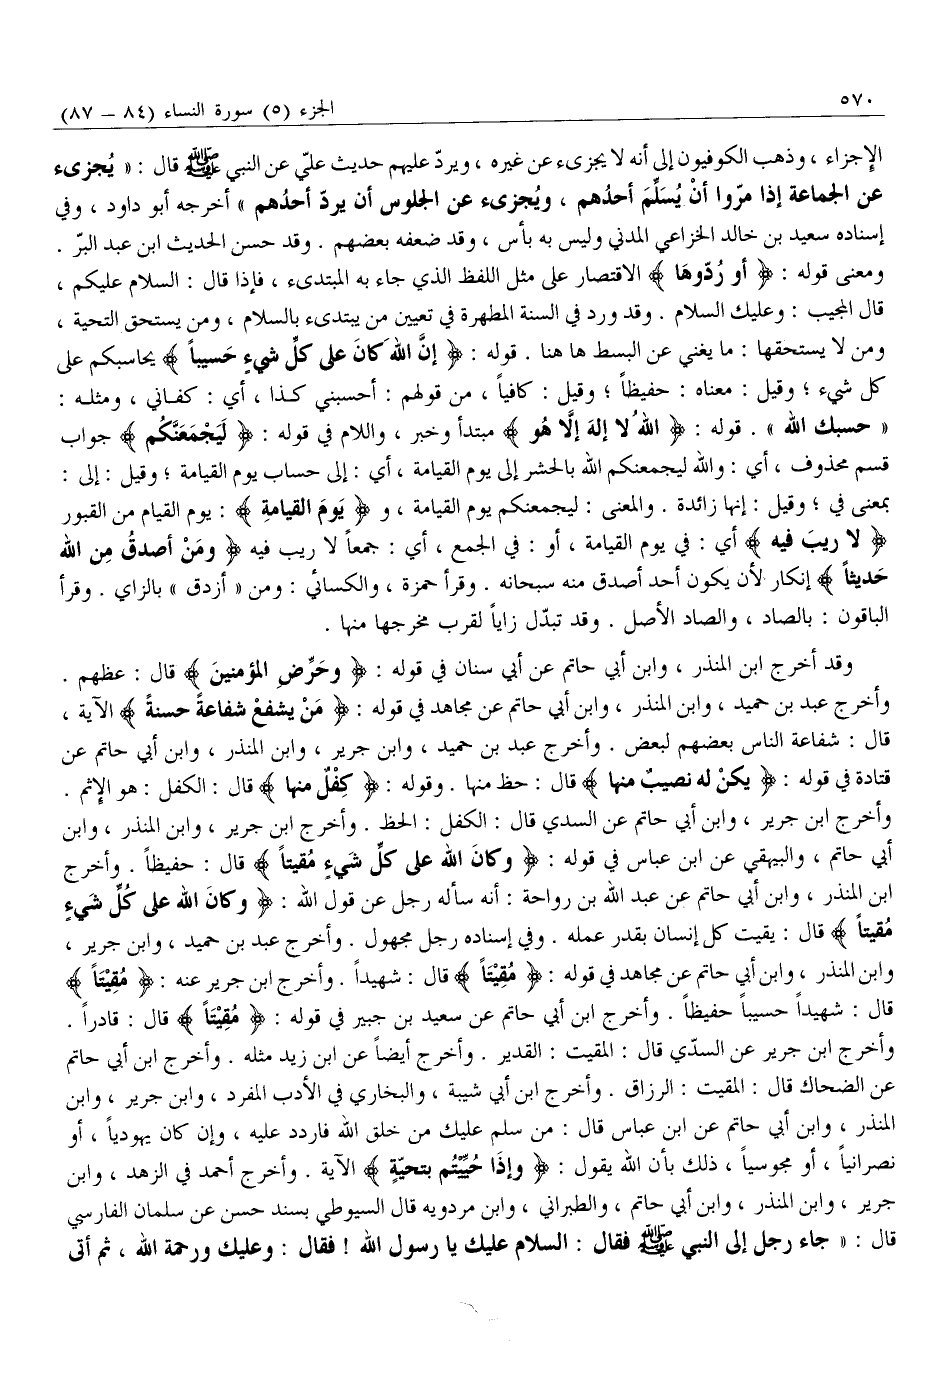 ٥٧٠
الجزء (٥) سورة النساء (٨٤ – ٨٧)
الإجزاء ، وذهب الكوفيون إلى أنه لا يجزىء عن غيره ، ويردّ عليهم حديث عليّ عن النبي ﷺ قال : « يُجزىء
عن الجماعة إذا مرّوا أنْ يُسَلِّمَ أحدُهم ، ويُجزىء عن الجلوس أن يردّ أحدُهم » أخرجه أبو داود ، وفي
إسناده سعيد بن خالد الخزاعي المدني وليس به بأس ، وقد ضعفه بعضهم . وقد حسن الحديث ابن عبد البرّ .
ومعنى قوله : ﴿ أو رُدّوهَا ﴾ الاقتصار على مثل اللفظ الذي جاء به المبتدىء ، فإذا قال : السلام عليكم ،
قال المجيب : وعليك السلام . وقد ورد في السنة المطهرة في تعيين من يبتدىء بالسلام ، ومن يستحق التحية ،
ومن لا يستحقها : ما يغني عن البسط ها هنا . قوله : ﴿ إنَّ اللهَ كانَ على كلِّ شيءٍ حَسيباً ﴾ يحاسبكم على
كل شيء ؛ وقيل : معناه : حفيظاً ؛ وقيل : كافياً ، من قولهم : أحسبني كذا ، أي : كفاني ، ومثله :
« حسبك الله » . قوله : ﴿ اللهُ لا إلهَ إلَّا هُو ﴾ مبتدأ وخبر ، واللام في قوله : ﴿ لَيَجْمَعَنَّكُم ﴾ جواب
قسم محذوف ، أي : والله ليجمعنكم الله بالحشر إلى يوم القيامة ، أي : إلى حساب يوم القيامة ؛ وقيل : إلى :
بمعنى في ؛ وقيل : إنها زائدة . والمعنى : ليجمعنكم يوم القيامة ، و ﴿ يَومَ القيامةِ ﴾ : يوم القيام من القبور
﴿ لا ريبَ فيه ﴾ أي : في يوم القيامة ، أو : في الجمع ، أي : جمعاً لا ريب فيه ﴿ ومَنْ أصدقُ مِن الله
حَديثاً ﴾ إنكار لأن يكون أحد أصدق منه سبحانه . وقرأ حمزة ، والكسائي : ومن « أزدق » بالزاي . وقرأ
الباقون : بالصاد ، والصاد الأصل . وقد تبدّل زاياً لقرب مخرجها منها .
وقد أخرج ابن المنذر ، وابن أبي حاتم عن أبي سنان في قوله : ﴿ وحَرِّضِ المؤمنينَ ﴾ قال : عظهم .
وأخرج عبد بن حميد ، وابن المنذر ، وابن أبي حاتم عن مجاهد في قوله : ﴿ مَنْ يشفعْ شفاعةً حسنةً ﴾ الآية ،
قال : شفاعة الناس بعضهم لبعض . وأخرج عبد بن حميد ، وابن جرير ، وابن المنذر ، وابن أبي حاتم عن
قتادة في قوله : ﴿ يكنْ له نصيبٌ منها ﴾ قال : حظ منها . وقوله : ﴿ كِفْلٌ منها ﴾ قال : الكفل : هو الإثم .
وأخرج ابن جرير ، وابن أبي حاتم عن السدي قال : الكفل : الحظ . وأخرج ابن جرير ، وابن المنذر ، وابن
أبي حاتم ، والبيهقي عن ابن عباس في قوله : ﴿ وكانَ الله على كلِّ شَيءٍ مُقيتاً ﴾ قال : حفيظاً . وأخرج
ابن المنذر ، وابن أبي حاتم عن عبد الله بن رواحة : أنه سأله رجل عن قول الله : ﴿ وكانَ الله على كُلِّ شَيءٍ
مُقيتاً ﴾ قال : يقيت كل إنسان بقدر عمله . وفي إسناده رجل مجهول . وأخرج عبد بن حميد ، وابن جرير ،
وابن المنذر ، وابن أبي حاتم عن مجاهد في قوله : ﴿ مُقِيْتَاً ﴾ قال : شهيداً . وأخرج ابن جرير عنه : ﴿ مُقِيْتَاً ﴾
قال : شهيداً حسيباً حفيظاً . وأخرج ابن أبي حاتم عن سعيد بن جبير في قوله : ﴿ مُقِيْتاً ﴾ قال : قادراً .
وأخرج ابن جرير عن السدّي قال : المقيت : القدير . وأخرج أيضاً عن ابن زيد مثله . وأخرج ابن أبي حاتم
عن الضحاك قال : المقيت : الرزاق . وأخرج ابن أبي شيبة ، والبخاري في الأدب المفرد ، وابن جرير ، وابن
المنذر ، وابن أبي حاتم عن ابن عباس قال : من سلم عليك من خلق الله فاردد عليه ، وإن كان يهودياً ، أو
نصرانياً ، أو مجوسياً ، ذلك بأن الله يقول : ﴿ وإذَا حُيِّيْتُم بتحيّةٍ ﴾ الآية . وأخرج أحمد في الزهد ، وابن
جرير ، وابن المنذر ، وابن أبي حاتم ، والطبراني ، وابن مردويه قال السيوطي بسند حسن عن سلمان الفارسي
قال : « جاء رجل إلى النبي ﷺ فقال : السلام عليك يا رسول الله ! فقال : وعليك ورحمة الله ، ثم أتى